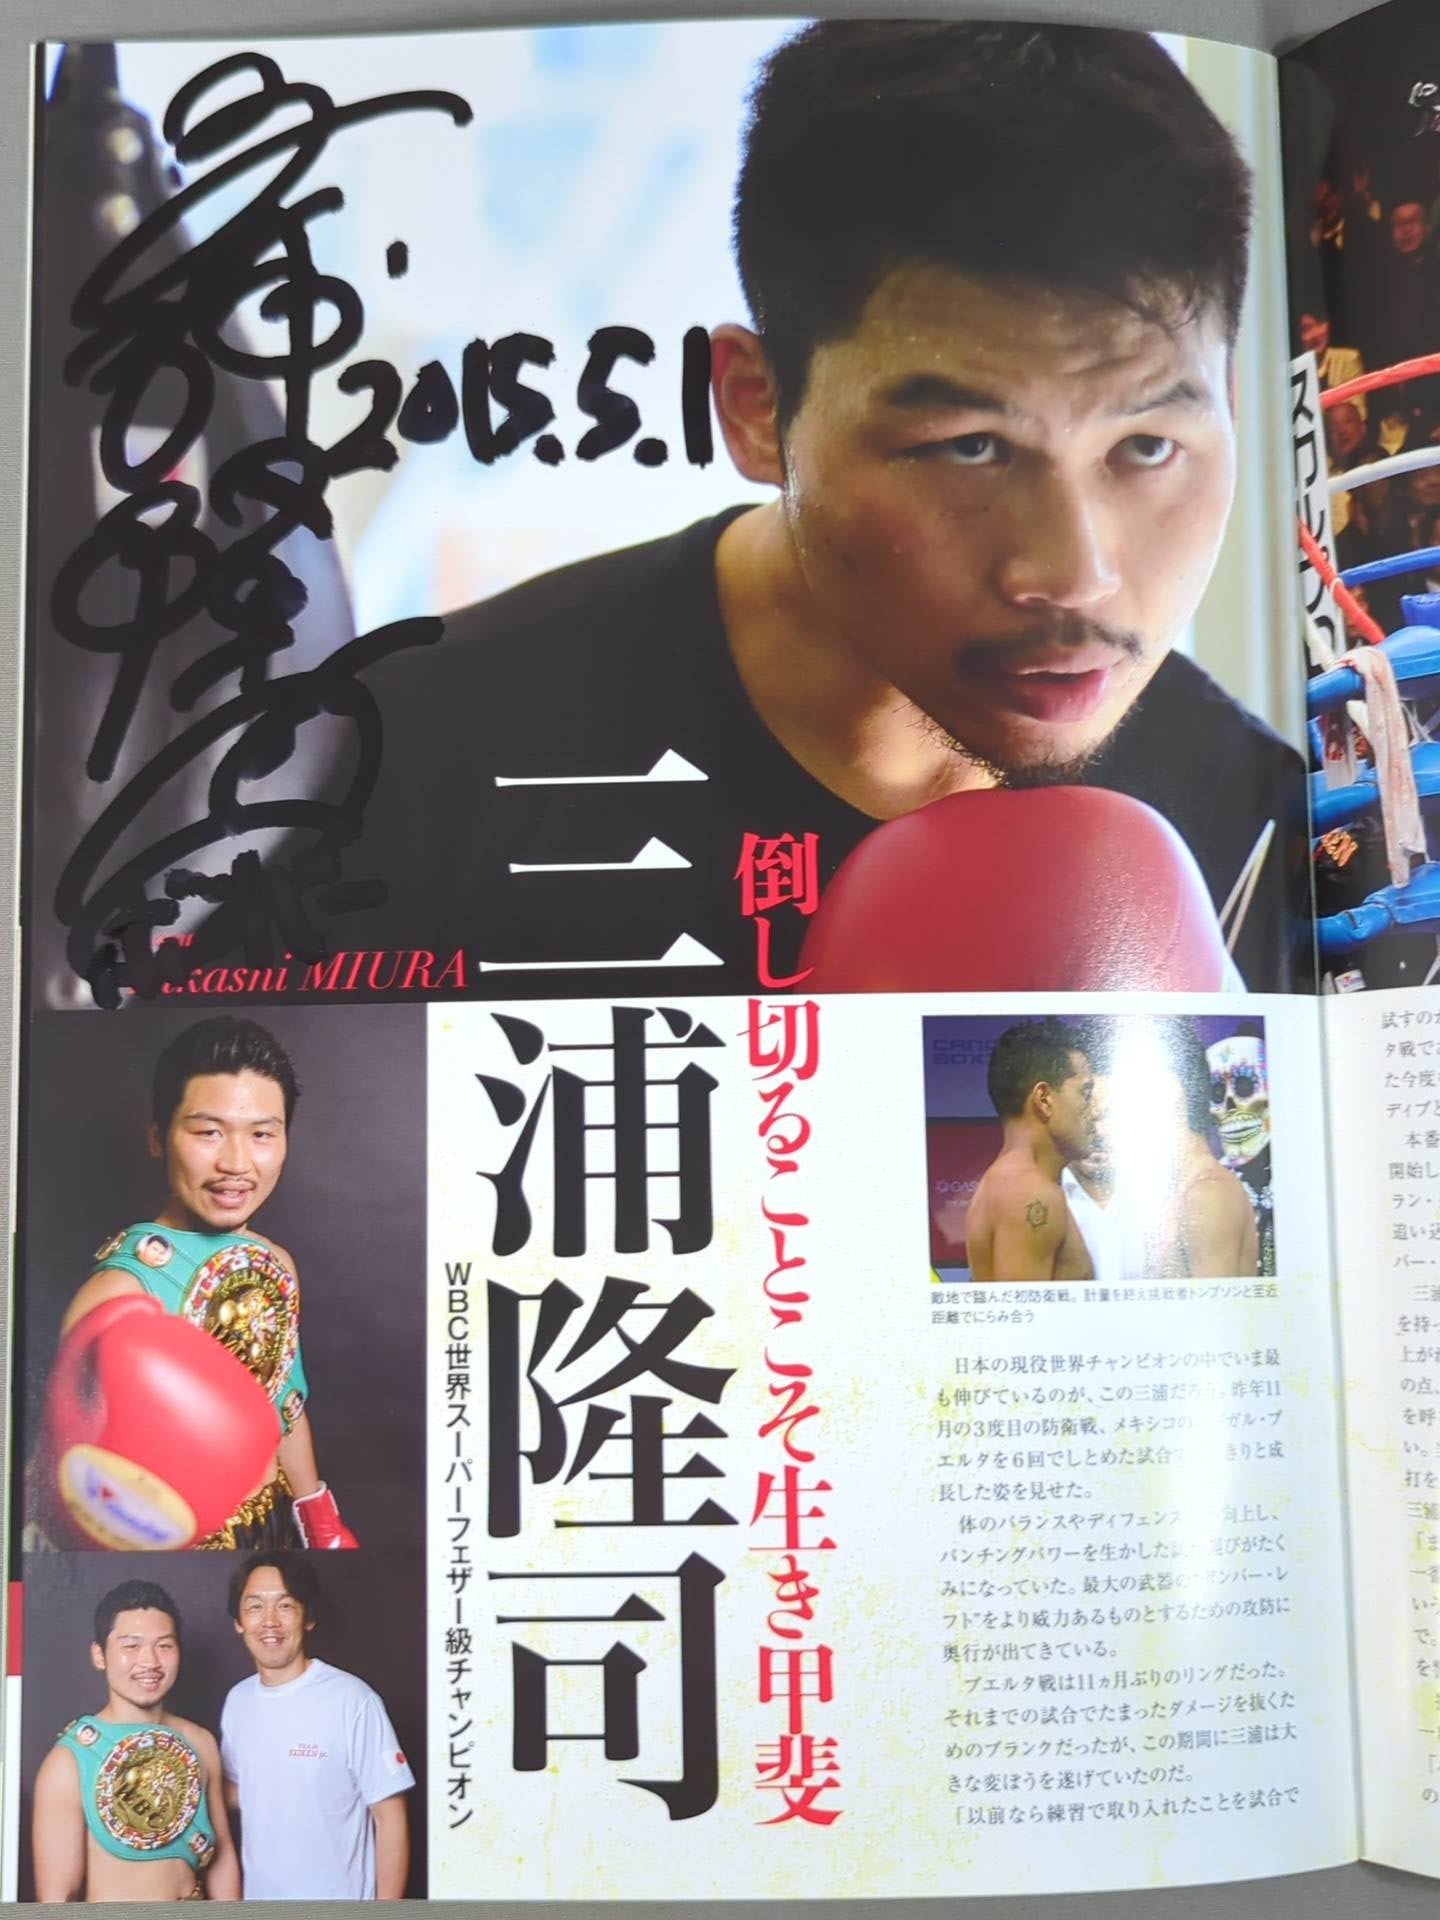 2015.5.1
ボンバー
MIURA
三浦隆司
倒し切ることこそ生き甲斐
WBC世界スーパーフェザー級チャンピオン
スカルプD
敵地で臨んだ初防衛戦。計量を終え挑戦者トンプソンと至近
距離でにらみ合う
日本の現役世界チャンピオンの中でいま最
も伸びているのが、この三浦だろう。昨年11
月の3度目の防衛戦、メキシコの ガル・プ
エルタを6回でしとめた試合で きりと成
長した姿を見せた。
体のバランスやディフェンス 向上し、
パンチングパワーを生かした 運びがたく
みになっていた。最大の武器の"ボンバー・レ
フト"をより威力あるものとするための攻防に
奥行が出てきている。
プエルタ戦は11ヵ月ぶりのリングだった。
それまでの試合でたまったダメージを抜くた
めのブランクだったが、この期間に三浦は大
きな変ぼうを遂げていたのだ。
「以前なら練習で取り入れたことを試合で
試すのが
タ戦で
た今度
ディブと
本番
開始し
ラン・
追い込
バー・
三浦
を持っ
上が
の点、
を呼
い。
打を
三浦
「ま
一番
いう
で。
を